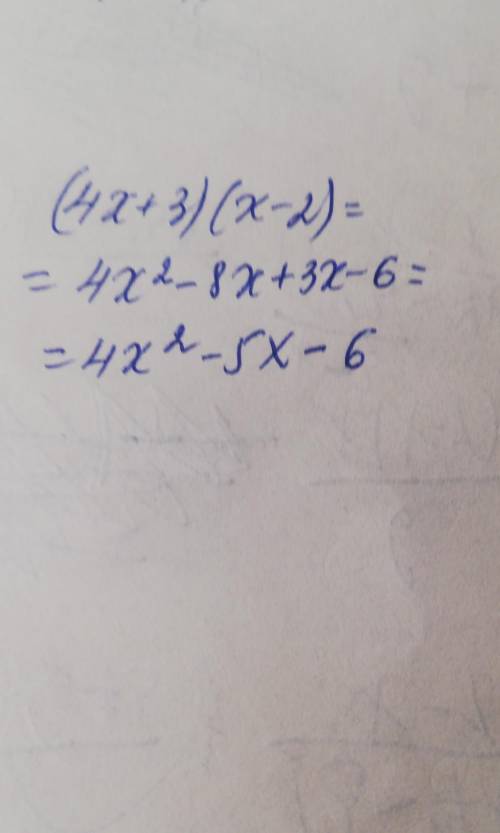 (4x+3)(x-2)=
=4x²-8x+3x-6=
=4x²-5x-6